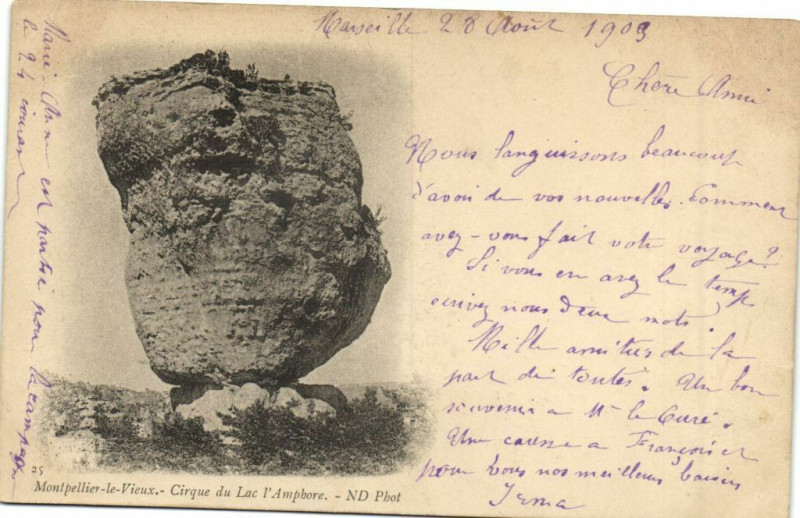 Marseille 28 Août 1903
Chère Amie
Nous languissons beaucoup
d'avoir de vos nouvelles. Comment
avez-vous fait votre voyage?
Si vous en avez le temps
ecrivez nous deux mots.
Mille amitiés de la
part de toutes. Un bon
souvenir a Mr le Curé.
Une caresse a François et
pour vous nos meilleurs baisers
Marie-Anne est partie pour la campagne
le 24 courant
25
Montpellier-le-Vieux.- Cirque du Lac l'Amphore. - ND Phot